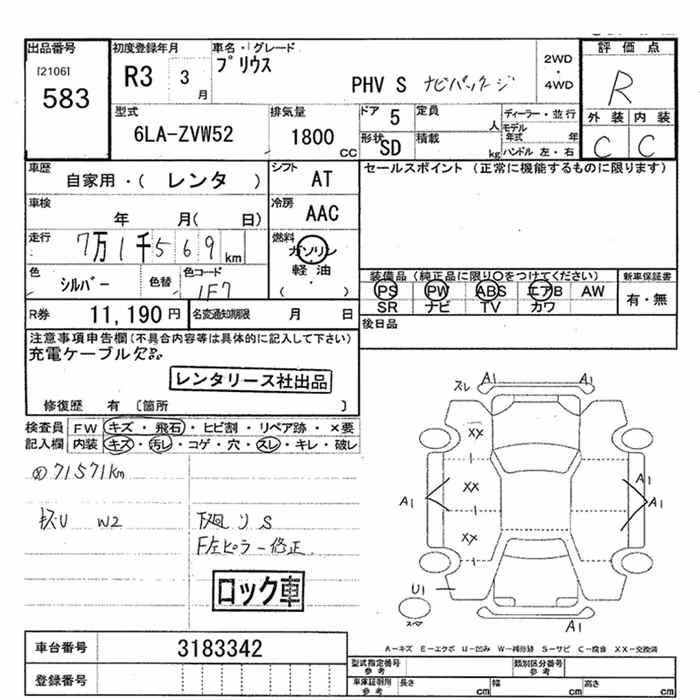 出品番号 初度登録年月 車名・グレード 評価点
[2106] プリウス 2WD
583 R3 3月 PHV S ナビパッケージ ・ 4WD R
型式 排気量 ドア 5 定員 人 ディーラー・並行 外装 内装
6LA-ZVW52 1800 CC 形状 SD 積載 kg モデル年式 年 ハンドル 左・右 C C
車歴 シフト セールスポイント (正常に機能するものに限ります)
自家用・( レンタ ) AT
車検 年 月( 日) 冷房 AAC
走行 7万1千569 km 燃料 ガソリン
軽油
( ・ )
色 シルバー 色替 色コード 1F7
装備品 (純正品に限り○をつけてください) 新車保証書
PS PW ABS エアB AW 有・無
SR ナビ TV カワ
R券 11,190 円 名変通知期限 月 日 後日品
注意事項申告欄(不具合内容等は具体的に記入して下さい)
充電ケーブル欠品
レンタリース社出品
修復歴 有 〔箇所 〕
検査員 FW キズ・飛石・ヒビ割・リペア跡・×要
記入欄 内装 キズ・汚レ・コゲ・穴・スレ・キレ・破レ
71571km
W2
F左ピラー修正
ロック車
スレ A1 A1
XX
XX
XX
A1 A1 A1
U1
A1
スペア
A-キズ E-エクボ U-凹み W-補修跡 S-サビ C-腐食 XX-交換済
車台番号 3183342
登録番号
型式指定番号 参考 類別区分番号 参考
車庫証明用 参考 長さ cm 幅 cm 高さ cm